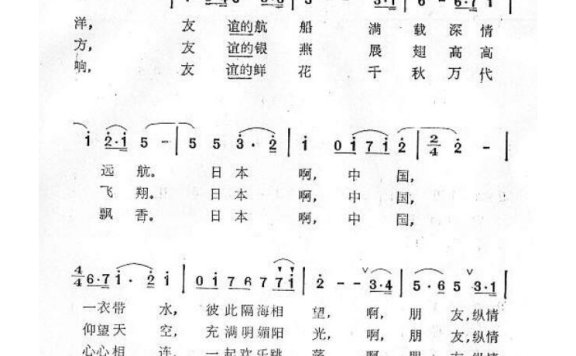 洋， 友 谊的航 船 满 载 深 情
方， 友 谊的银 燕 展 翅 高 高
响， 友 谊的鲜 花 千 秋 万 代
i 2·i 5 - | 5 5 3·2 | i 0 i 7 i 2 | 2/4 2 - |
远 航。 日 本 啊， 中 国，
飞 翔。 日 本 啊， 中 国，
飘 香。 日 本 啊， 中 国，
4/4 6·7 i·2 i | 0 i 7 6 7 7 i | 2 - - 3·4 | 5·6 5 3·1 |
一衣带 水， 彼此隔海相 望， 啊， 朋 友，纵情
仰望天 空， 充满明媚阳 光， 啊， 朋 友，纵情
心心相 连， 一起欢乐跳 啊， 朋 友，纵情